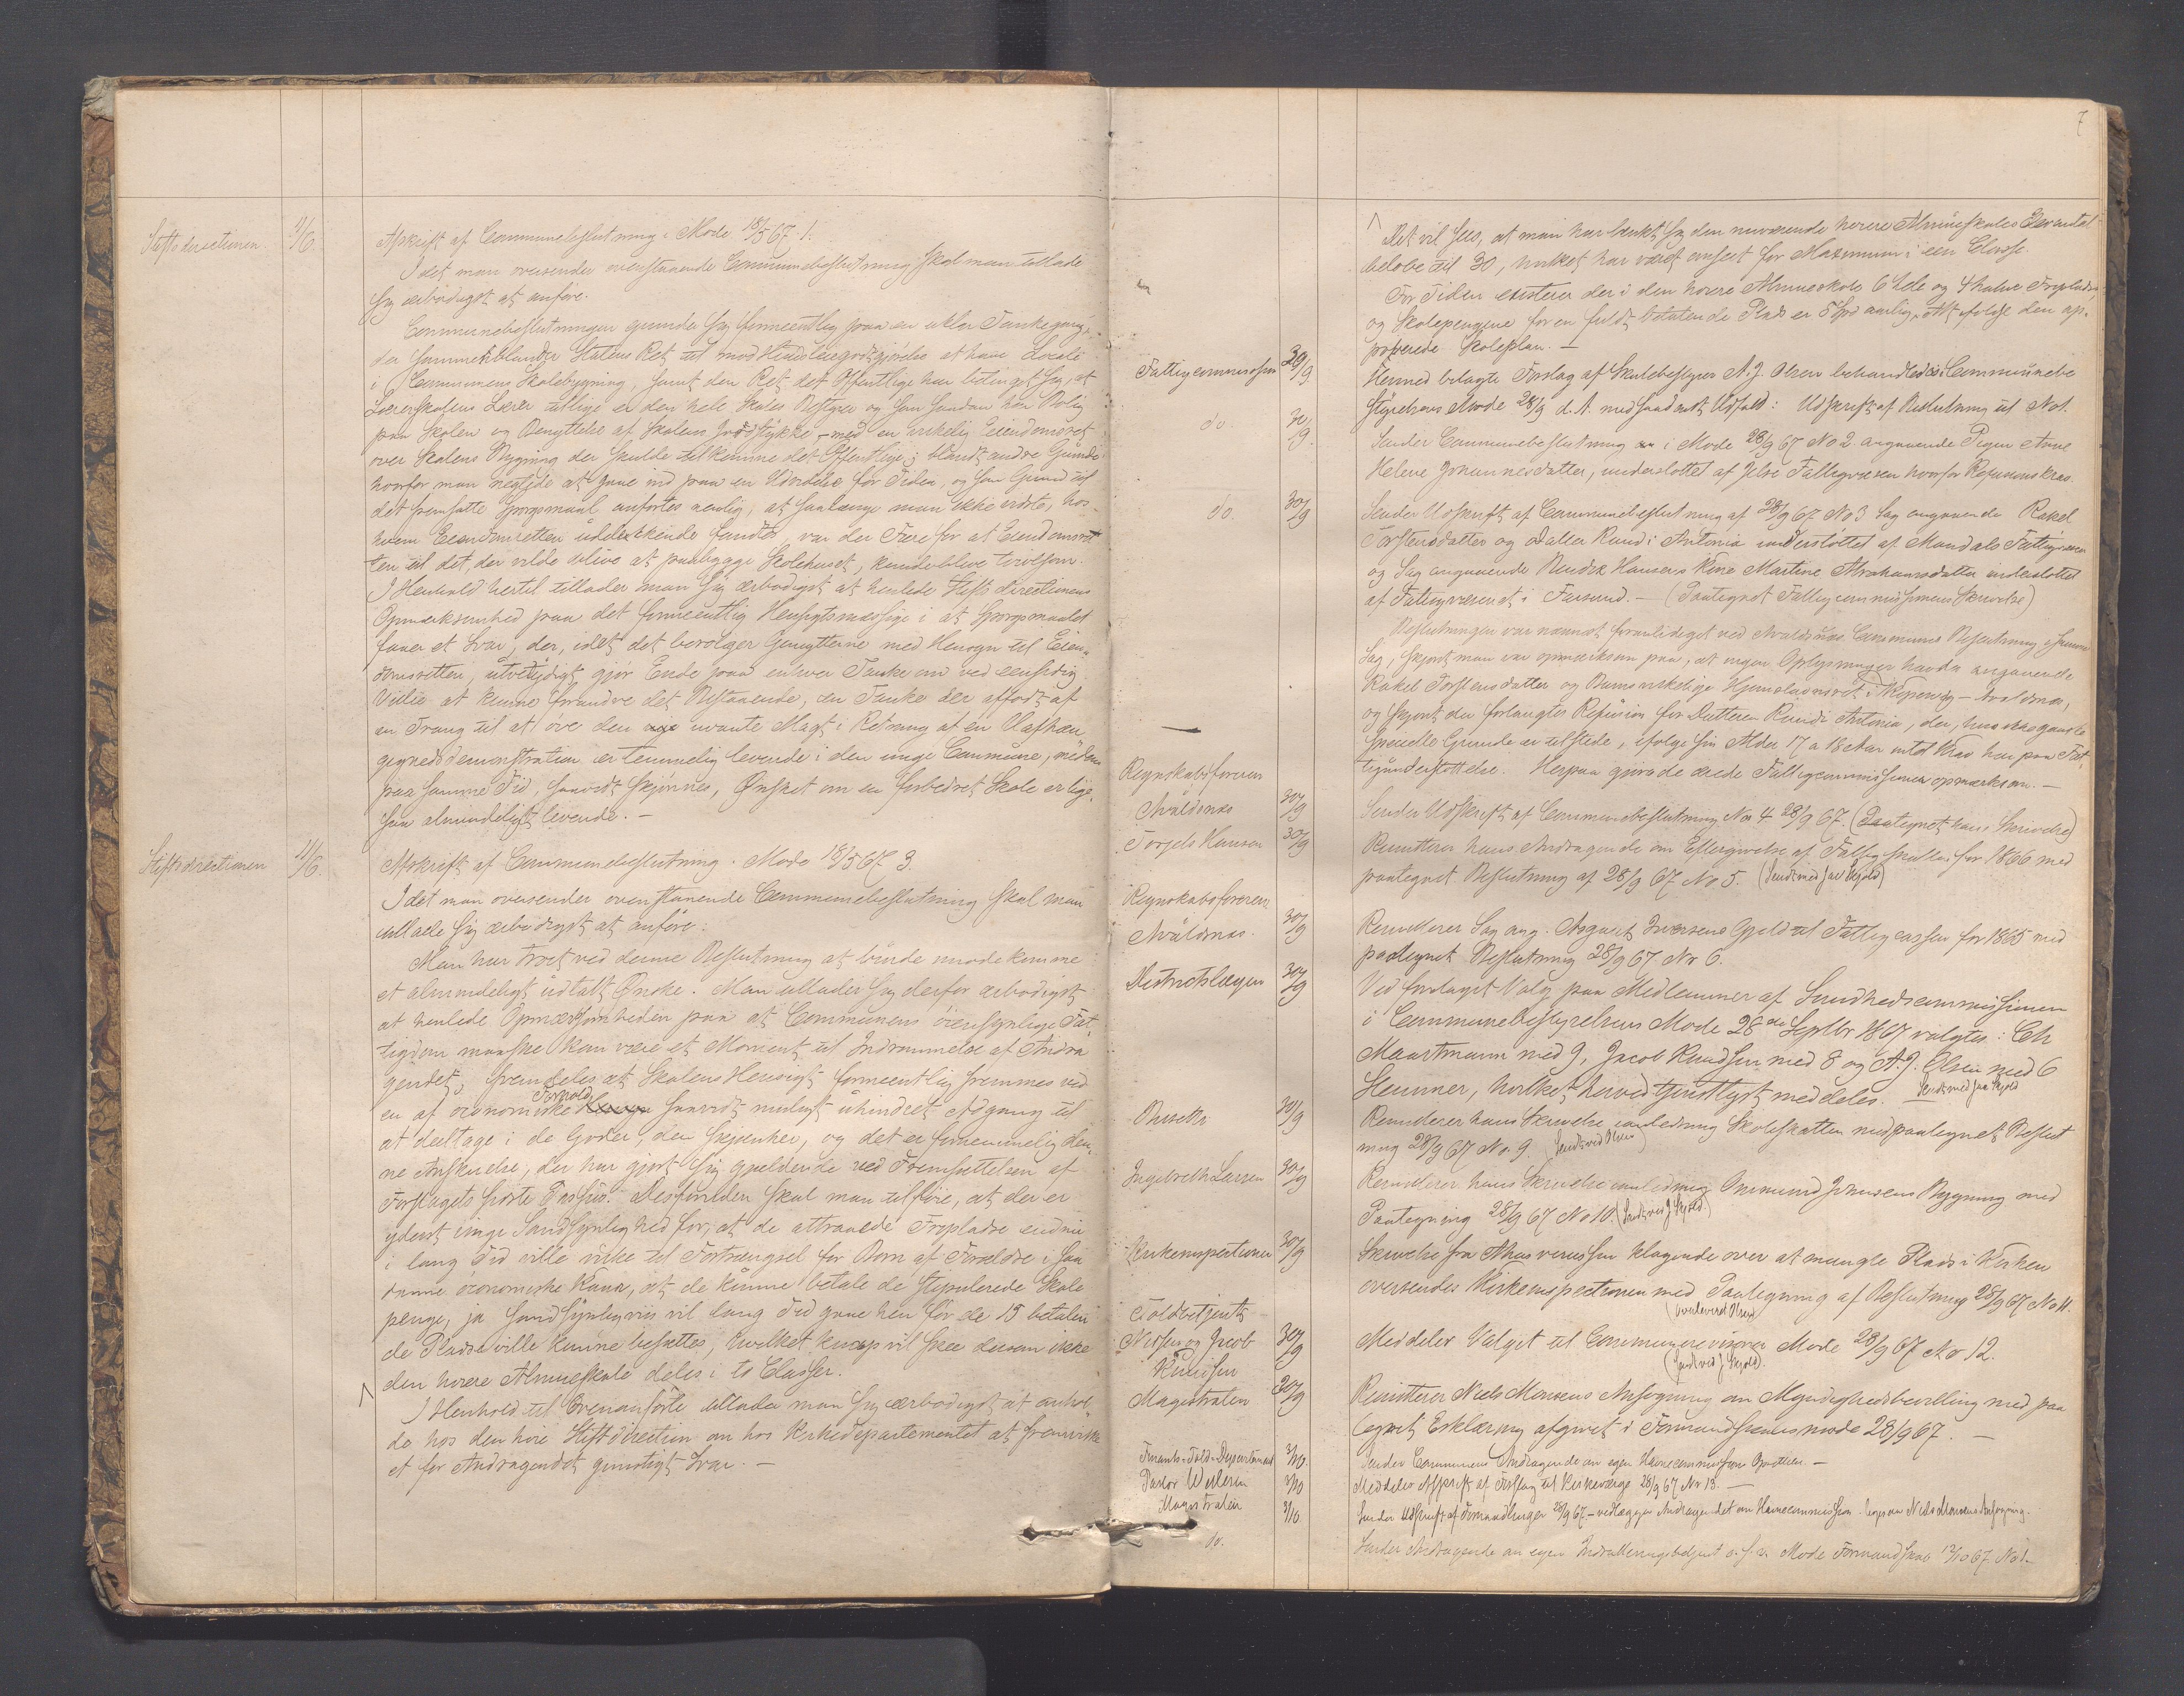 Stiftsdirectionen. 11/6.
Afskrift af Communebeslutning i Møde 18/5 67 1.
Idet man oversender ovenstaaende Communebeslutning skal man tillade
sig ærbødigst at anføre.
Communebeslutningen grunder sig formeentlig paa en uklar Tankegang,
der sammenblander Statens Ret til mod Huusleiegodtgjørelse at have Locale
i Communens Skolebygning, samt den Ret det Offentlige har betinget sig, at
Lærerskolens Lærer tillige er den hele Skoles Bestyrer og som saadan har Bolig
paa Skolen og Benyttelse af Skolens Jordstykke – med en virkelig Eiendomsret
over Skolens Bygning der skulde tilkomme det Offentlige; blandt andre Grunde
hvorfor man negtede at gaae ind paa en Udvidelse før Tiden, og som Grund til
det fremsatte Spørgsmaal anførtes nemlig, at saalænge man ikke vidste, hos
hvem Eiendomsretten udelukkende fandtes, var der Fare for at Eiendomsret
ten til det, der vilde blive at paabygge Skolehuset, kunde blive tvivlsom.
I Henhold hertil tillader man sig ærbødigst at henlede Stiftsdirectionens
Opmærksomhed paa det formeentlig Hensigtsmæssige i at Spørgsmaalet
faaer et Svar, der, idet det beroliger Gemytterne med Hensyn til Eien-
domsretten, utvetydigt gjør Ende paa enhver Tanke om ved eensidig
Villie at kunne forandre det Bestaaende, en Tanke der affødt af
en Trang til at øve den uvante Magt i Retning af en Uafhæn
gighedsdemonstration er temmelig levende i den unge Commune, medens
paa samme Tid, saavidt skjønnes, Ønsket om en forbedret Skole er lige
saa almindeligt levende. –
Stiftsdirectionen 11/6.
Afskrift af Communebeslutning i Møde 18/5 67 3
Idet man oversender ovenstaaende Communebeslutning skal man
tillade sig ærbødigst at anføre:
Man har troet ved denne Beslutning at burde imødekomme
et almindeligt udtalt Ønske. Man tillader sig derfor ærbødigst
at henlede Opmærksomheden paa at Communens øiensynlige Fat-
tigdom maaske kan være et Moment til Indrømmelse af Andra
gendet, fremdeles at Skolens Hensigt formeentlig fremmes ved
en af oeconomiske Forhold saavidt muligt uhindret Adgang til
at deeltage i de Goder, den skjænker, og det er fornemmelig den-
ne Anskuelse, der har gjort sig gjældende ved Fremsættelsen af
Forslagets sidste Passus. Desforuden skal man tilføie, at der er
yderst ringe Sandsynlighed for, at de attraaede Fripladse endnu
i lang Tid ville virke til Fortrængsel for Børn af Forældre i saa
danne oeconomiske Kaar, at de kunne betale de stipulerede Skole
penge, ja sandsynligviis vil lang Tid gaae hen før de 15 betalen
de Pladse ville kunne besættes, hvilket knap vil skee dersom ikke
den høiere Almueskole deles i to Classer.
I Henhold til Ovenanførte tillader man sig ærbødigst at anhol-
de hos den høie Stiftsdirection om hos Kirkedepartementet at fremvirke
et for Andragendet gunstigt Svar. –
7
Det vil sees, at man har tænkt sig den nuværende høiere Almueskoles Elevantal
beløbe til 30, hvilket har været anseet for Maximum i een Classe.
For Tiden existerer der i den høiere Almueskole 6 hele og 4 halve Fripladse,
og Skolepengene for en fuldt betalende Plads er 8 Spd aarlig, Alt ifølge den ap-
proberede Skoleplan. –
Fattigcommissionen 30/9
Hermed belagte Forslag af Skolebestyrer A. J. Olsen behandledes i Communebe
styrelsens Møde 28/9 d. A. med saadant Udfald: Udskrift af Beslutning til No 1.
do. 30/9.
Sender Communebeslutning i Møde 28/9 67 No 2 angaaende Pigen Anne
Helene Johannesdatter, understøttet af Jelse Fattigvæsen hvorfor Refusionskrav.
do. 30/9
Sender Udskrift af Communebeslutning af 28/9 67 No 3 Sag angaaende Rakel
Torstensdatter og Datter Randi Antonia understøttet af Mandals Fattigvæsen
og Sag angaaende Bendix Hansens Kone Martine Abrahamsdatter understøttet
af Fattigvæsenet i Farsund. – (Paategnet Fattigcommissionens Skrivelse)
Beslutningen var nærmest foranlediget ved Avaldsnæs Communes Beslutning i samme
Sag, skjøndt man var opmærksom paa, at ingen Oplysninger havdes angaaende
Rakel Torstensdatter og Barns virkelige Hjemstavnsret i Kopervig – Avaldsnæs,
og skjønt der forlangtes Refusion for Datteren Randi Antonia, der, hvis ikke ganske
specielle Grunde er tilstede, ifølge sin Alder 17 a 18 Aar intet Krav har paa Fat-
tigunderstøttelse. Herpaa gjørde ærede Fattigcommissionen opmærksom. –
Regnskabsføreren
Avaldsnæs 30/9
Sender Udskrift af Communebeslutning No 4 28/9 67. (Paategnet hans Skrivelse)
Torjels Hansen 30/9
Remitterer hans Andragende om Eftergivelse af Fattigskatten for 1866 med
paategnet Beslutning af 28/9 67 No 5. (Sendt med Jac Skjold)
Regnskabsføreren
Avaldsnæs. 30/9
Remitterer Sag ang. Asgaut Iversens Gjeld til Fattigcassen for 1865 med
paategnet Beslutning 28/9 67 No 6.
Districtslægen 30/9
Ved foretaget Valg paa Medlemmer af Sundhedscommissionen
i Communebestyrelsens Møde 28de Septbr 1867 valgtes: Ch
Maartmann med 9, Jacob Knudsen med 8 og A. J. Olsen med 6
Stemmer, hvilket herved tjenstligst meddeles. – Sendt med Jac Skjold
30/9
Remitterer hans Skrivelse anledning Skoleskatten med paategnet Beslut
ning 28/9 67 No. 9. (Sendt ved Olsen)
Ingebreth Larsen 30/9
Remitterer hans Skrivelse anledning Omund Johnsens Bygning med
Paategning 28/9 67 No 10. (Sendt ved J Skjold.)
Kirkeinspectionen 30/9
Skrivelse fra Ahasverussen klagende over at mangle Plads i Kirken
oversendes Kirkeinspectionen med Paategning af Beslutning 28/9 67 No 11.
(overleveret Olsen)
Toldbetjent
Nilsen og Jacob 30/9
Knudsen
Meddeler Valget til Communerevisorer Møde 28/9 67 No 12.
(sendt ved J. Skjold).
Magistraten 30/9
Remitterer Niels Monsens Ansøgning om Myndighedsbevilling med paa
tegnet Erklæring afgivet i Formandskabsmøde 28/9 67. –
Finants- & Told-Departementet 3/10.
Sender Communens Andragende om egen Havnecommission. –
Pastor 3/10
Meddeles Afskrift af Forslag til Kirkeværge 28/9 67 No 13. –
Magistraten 3/10.
Sender Udskrift af Forhandlinger 28/9 67. – vedlægger Andragendet om Havnecommission Niels Monsens Ansøgning.
do.
Sender Andragende om egen Møde Formandskab 12/10 67. No 1.